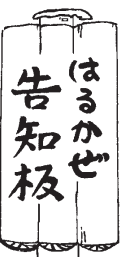 はるかぜ
告知板